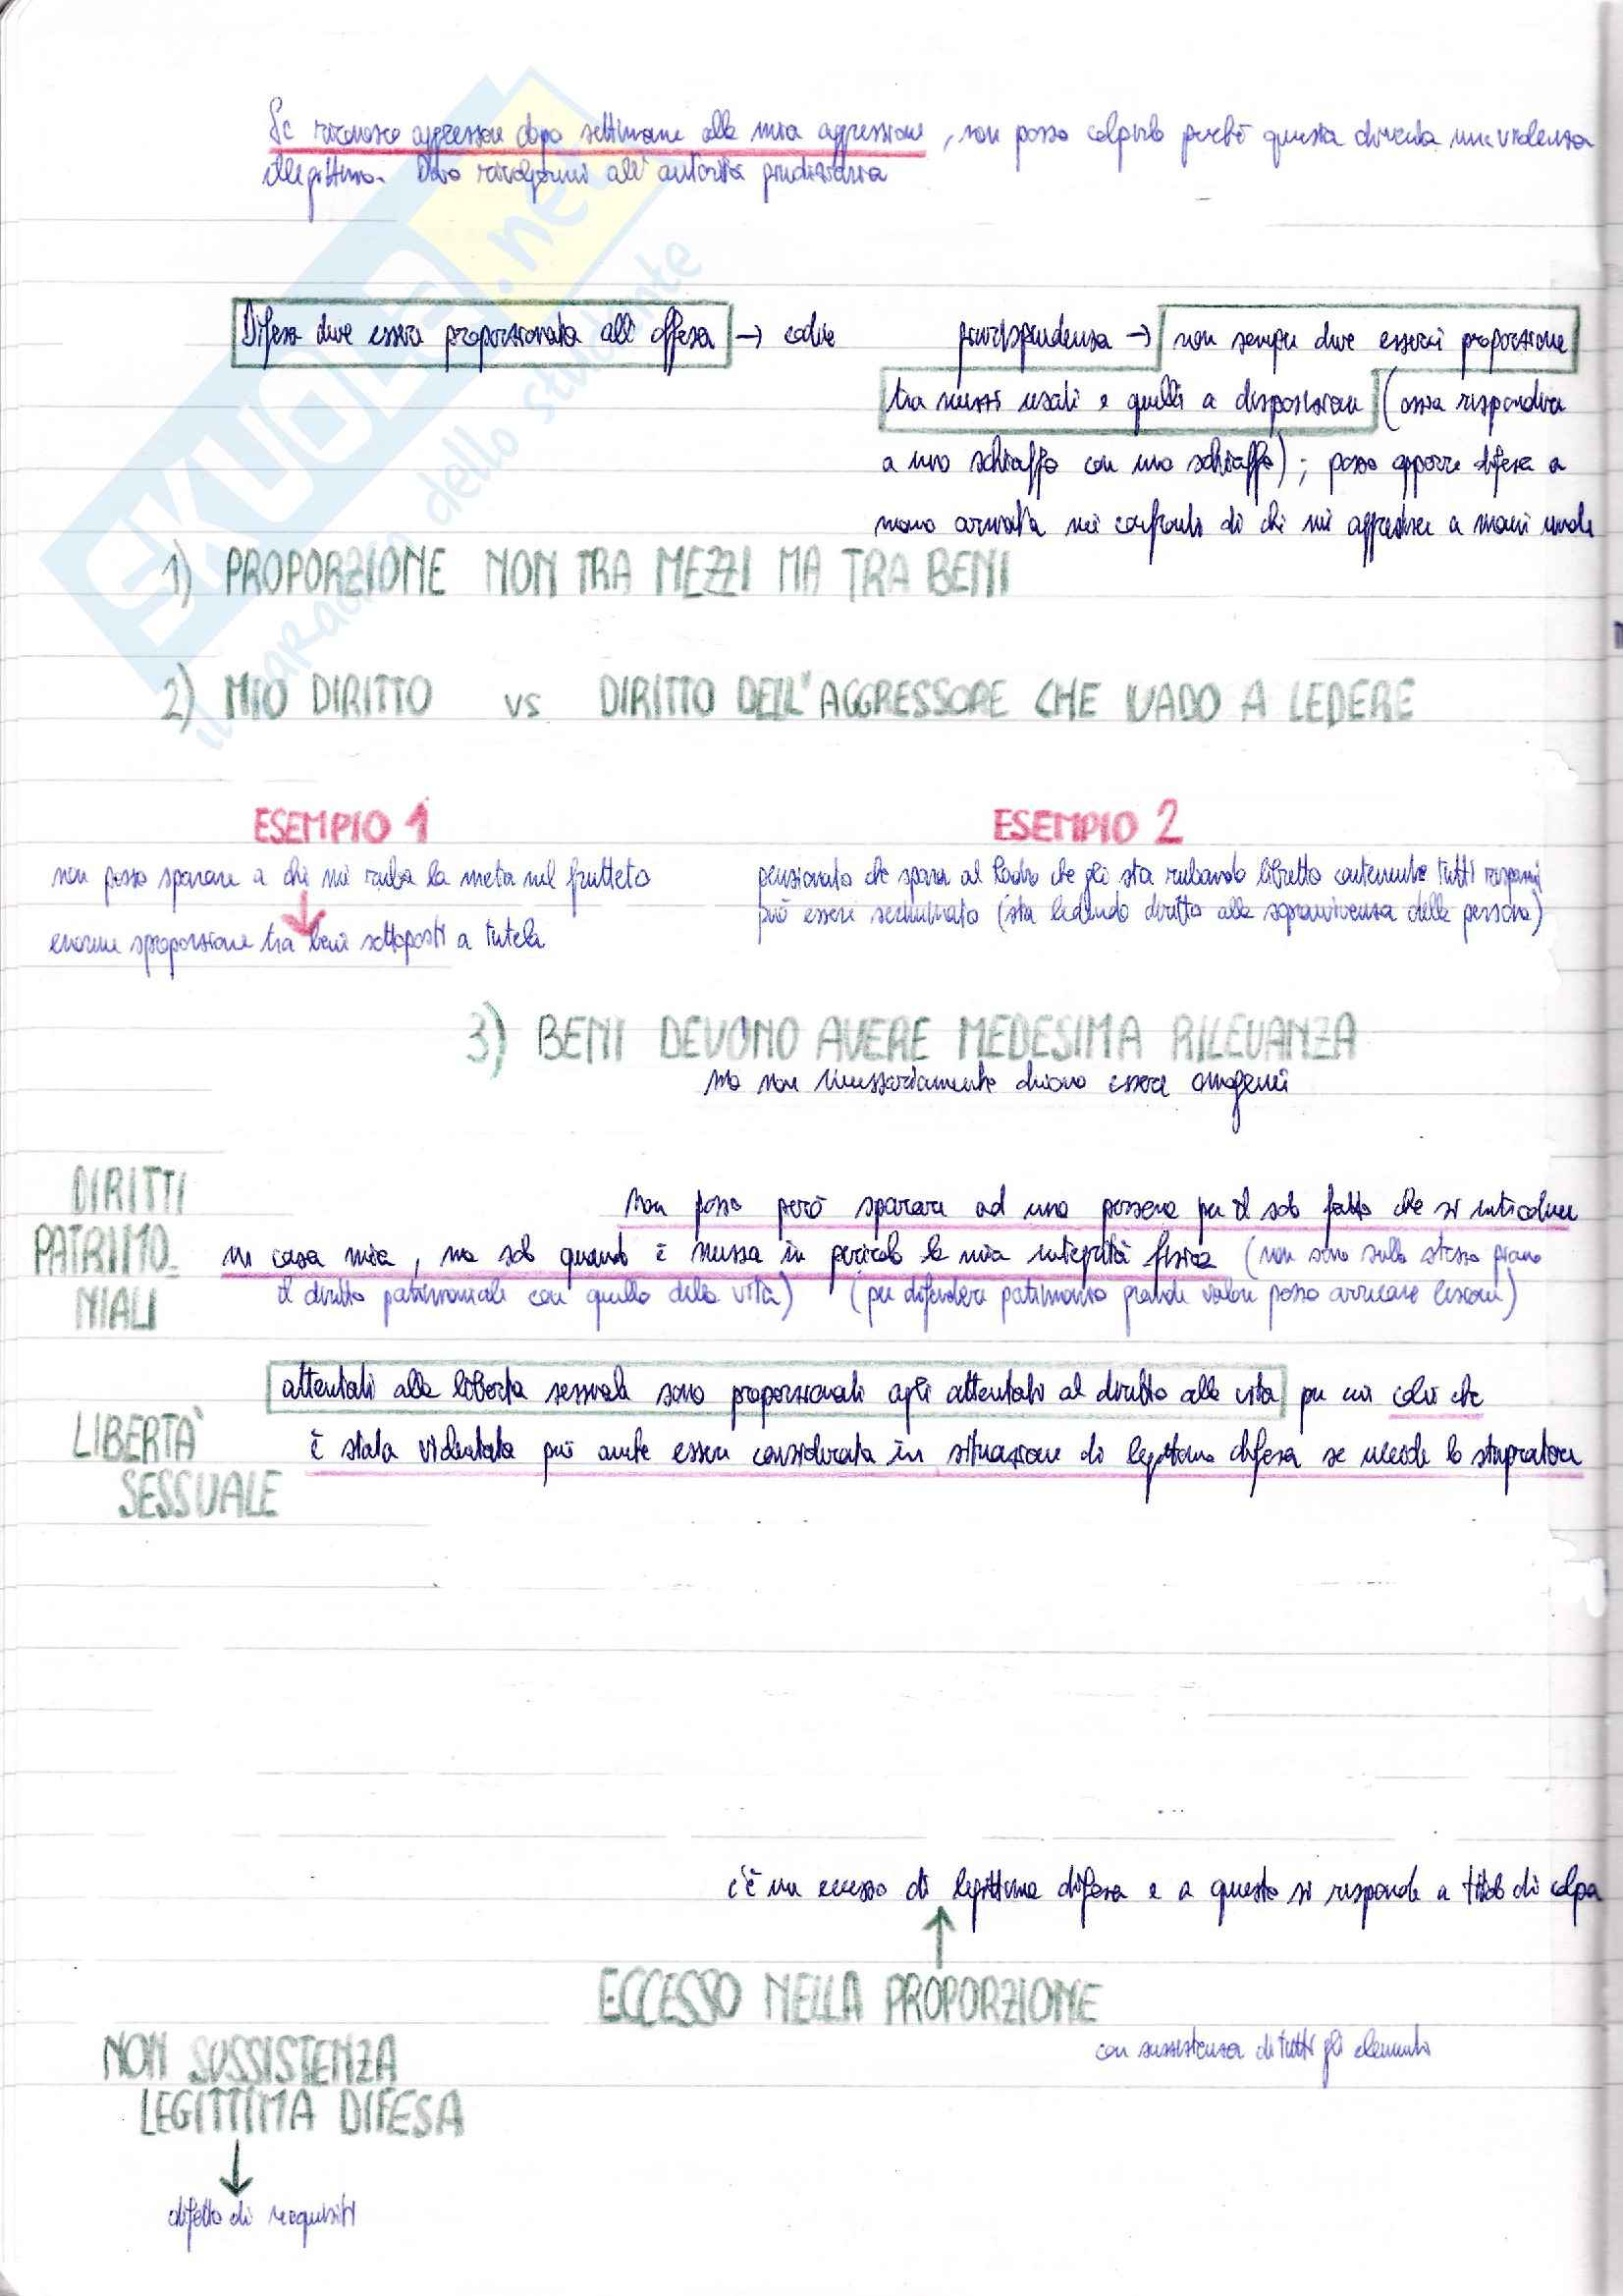 Se riconosco aggressore dopo settimane alla mia aggressione, non posso colpirlo perché questa diventa una violenza
illegittima. Devo rivolgermi all'autorità giudiziaria
SKUOLA.net
il paradiso dello studente
Difesa deve essere proporzionata all'offesa → codice
giurisprudenza → non sempre deve esserci proporzione
tra mezzi usati e quelli a disposizione (ossa rispondere
a uno schiaffo con uno schiaffo); posso opporre difesa a
mano armata nei confronti di chi mi aggredisce a mani nude
1) PROPORZIONE NON TRA MEZZI MA TRA BENI
2) MIO DIRITTO vs DIRITTO DELL'AGGRESSORE CHE VADO A LEDERE
ESEMPIO 1
non posso sparare a chi mi ruba la mela nel frutteto
↓
enorme sproporzione tra beni sottoposti a tutela
ESEMPIO 2
pensionato che spara al ladro che gli sta rubando libretto contenente tutti risparmi
può essere scriminato (sta ledendo diritto alla sopravvivenza della persona)
3) BENI DEVONO AVERE MEDESIMA RILEVANZA
ma non necessariamente devono essere omogenei
DIRITTI
PATRIMO-
NIALI
non posso però sparare ad una persona per il solo fatto che si introduce
in casa mia, ma solo quando è messa in pericolo la mia integrità fisica (non sono sullo stesso piano
il diritto patrimoniale con quello della vita) (per difendere patrimonio grande valore posso arrecare lesioni)
LIBERTA'
SESSUALE
attentati alla libertà sessuale sono proporzionali agli attentati al diritto alla vita per cui colei che
è stata violentata può anche essere considerata in situazione di legittima difesa se uccide lo stupratore
c'è un eccesso di legittima difesa e a questo si risponde a titolo di colpa
↑
ECCESSO NELLA PROPORZIONE
con sussistenza di tutti gli elementi
NON SUSSISTENZA
LEGITTIMA DIFESA
↓
difetto di requisiti